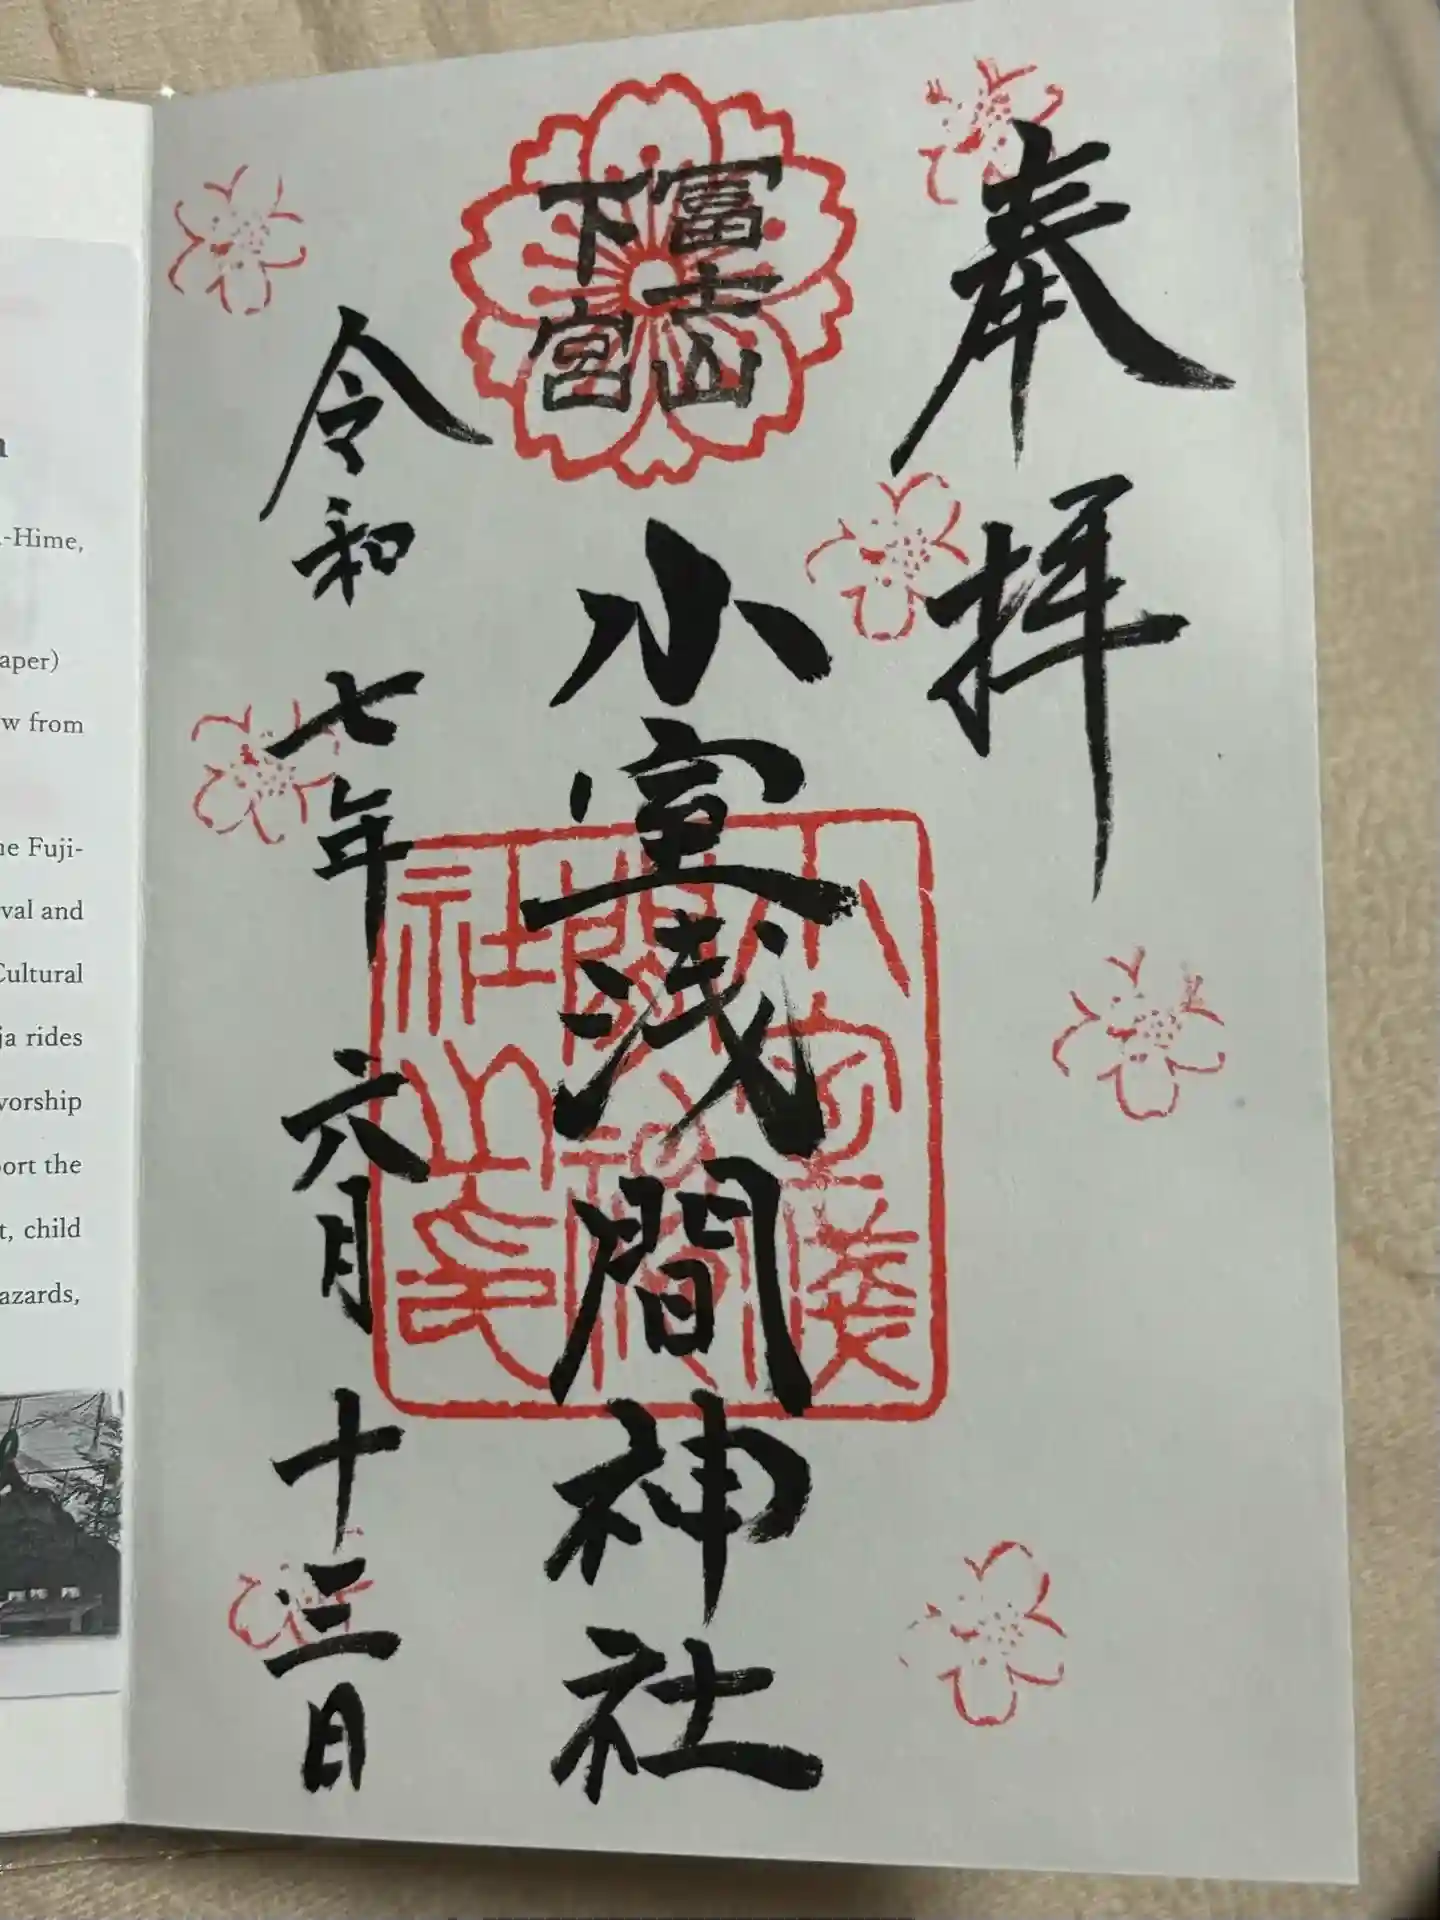 奉拝
富士山
下宮
小室浅間神社
令和七年六月十三日
-Hime,
aper)
w from
he Fuji-
val and
Cultural
ja rides
worship
port the
t, child
azards,